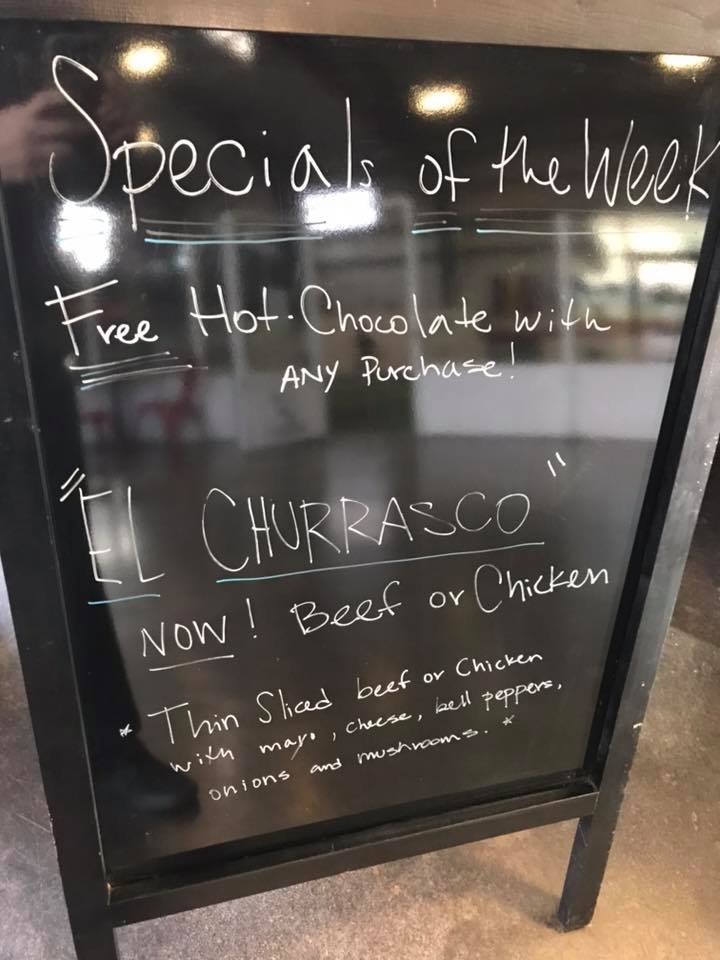 Specials of the Week
Free Hot Chocolate with
ANY Purchase!
"EL CHURRASCO"
NOW! Beef or Chicken
* Thin Sliced beef or Chicken
with mayo, cheese, bell peppers,
onions and mushrooms. *